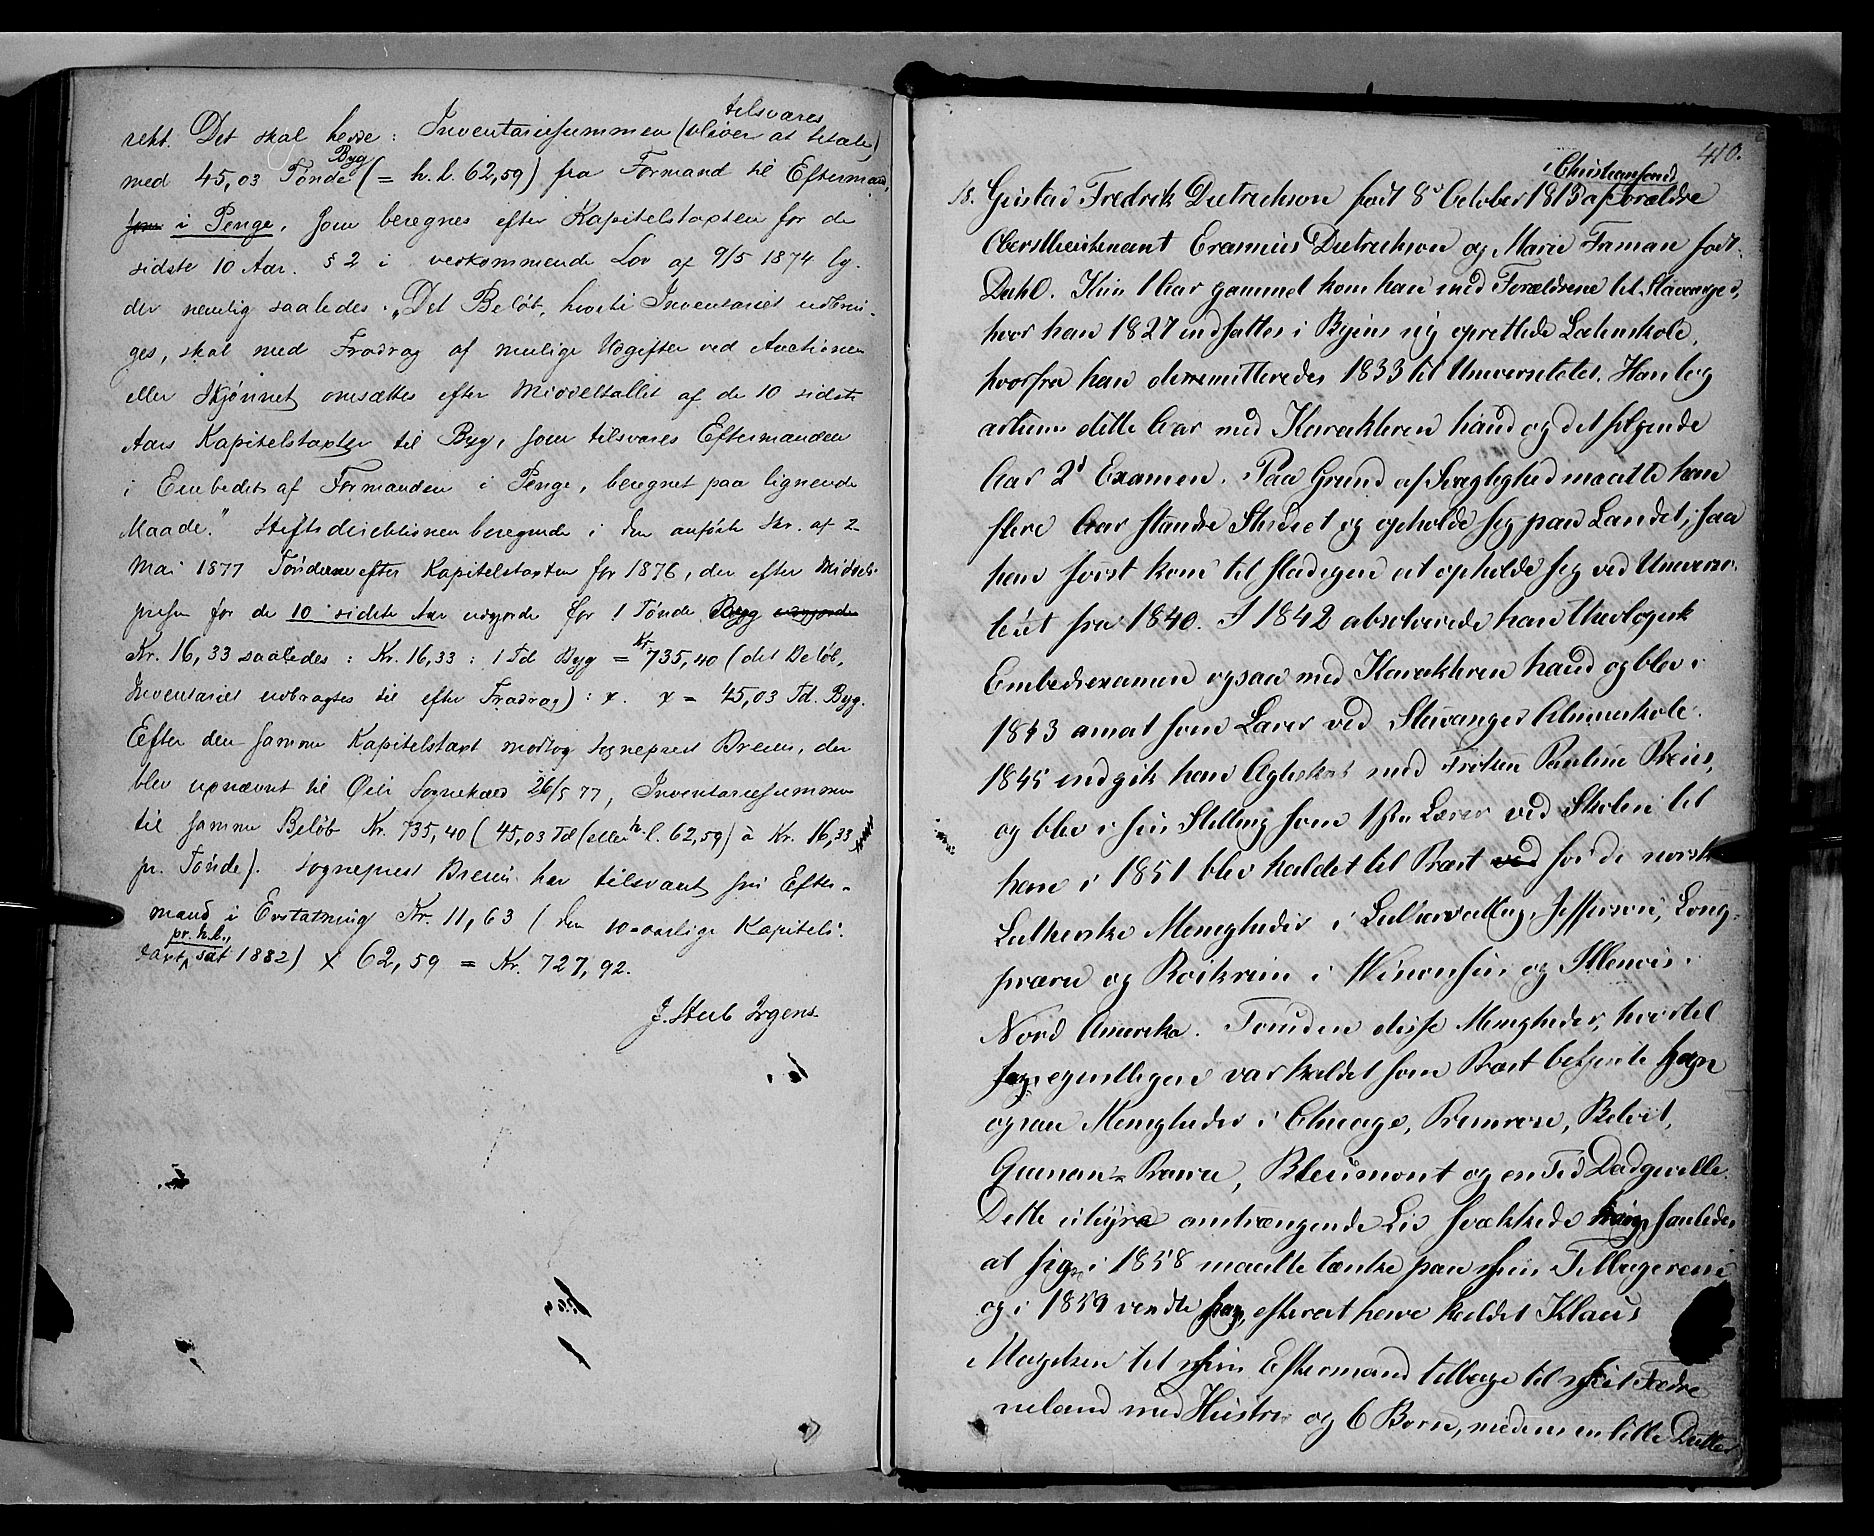 tilsvares
rekt. Det skal hedde: Inventariesummen (bliver at betale)
Byg
med 45,03 Tønde (= h.l. 62,59) fra Formand til Eftermand,
som i Penge, som beregnes efter Kapitelstaxten for de
sidste 10 Aar. § 2 i vedkommende Lov af 9/5 1874 ly-
der nemlig saaledes: „Det Beløb, hvortil Inventariet udbrin-
ges, skal med Fradrag af mulige Udgifter ved Auctionen
eller Skjønnet omsættes efter Middeltallet af de 10 sidste
Aars Kapitelstaxter til Byg, som tilsvares Eftermanden
i Embedet af Formanden i Penge, beregnet paa lignende
Maade." Stiftsdirektionen beregnede i den anførte Skr. af 2
Mai 1877 Tønderne efter Kapitelstaxten for 1876, der efter Middel-
prisen for de 10 sidste Aar udgjorde for 1 Tønde Byg udgjorde
Kr. 16,33 saaledes: Kr. 16,33 : 1 Td Byg = Kr. 735,40 (det Beløb,
Inventariet udbragtes til efter Fradrag) : x. x = 45,03 Td. Byg.
Efter den samme Kapitelstaxt modtog Sogneprest Breien, der
blev udnævnt til Øier Sognekald 26/5 77, Inventariesummen
til samme Beløb Kr. 735,40 (45,03 Td (eller h.l. 62,59) à Kr. 16,33
pr. Tønde). Sogneprest Breien har tilsvaret sin Efter-
mand i Erstatning Kr. 11,63 (den 10-aarlige Kapitels-
pr. h.l.,
taxt, sat 1882) x 62,59 = Kr. 727,92.
J. Stub Irgens
410.
i Christiansund
18. Gustav Fredrik Dietrichson født 8de October 1813 af Forældre
Oberstlieutenant Erasmus Dietrichson og Marie Framan født
Dahl. Kun 1 Aar gammel kom han med Forældrene til Stavanger,
hvor han 1827 indsattes i Byens nye oprettede Latinskole,
hvorfra han demitteredes 1833 til Universitetet. Han tog
artium dette Aar med Karakteren haud og det følgende
Aar 2d Examen. Paa Grund af Svaglighed maatte han
flere Aar standse Studiet og opholde sig paa Landet, saa
han først kom til stadigen at opholde sig ved Universi-
tetet fra 1840. I 1842 absolverede han theologisk
Embedsexamen ogsaa med Karakteren haud og blev i
1843 ansat som Lærer ved Stavanger Almueskole.
1845 indgik han Ægteskab med Frøken Pauline Preus,
og blev i sin Stilling som 1ste Lærer ved Skolen til
han i 1851 blev kaldet til Præst ved for de norsk
Lutherske Menigheder i Luthervalley, Jefferson, Long-
prærie og Rockrun i Wisconsin og Illinois i
Nord Amerika. Foruden disse Menigheder, hvortil
han egentligen var kaldet som Præst betjente han
ogsaa Menigheder i Chicago, Primrose, Beloit,
Queen Ann Prairie, Bluemont og en Tid Dodgeville.
Dette uhyre anstrængende Liv svækkede ham saaledes
at han i 1858 maatte tænke paa sin Tilbagereise
og i 1859 vendte han, efterat have kaldet Klaus
Magelsen til sin Eftermand tilbage til sit Fædre
neland med Hustru og 6 Børn, medens en lille Datter